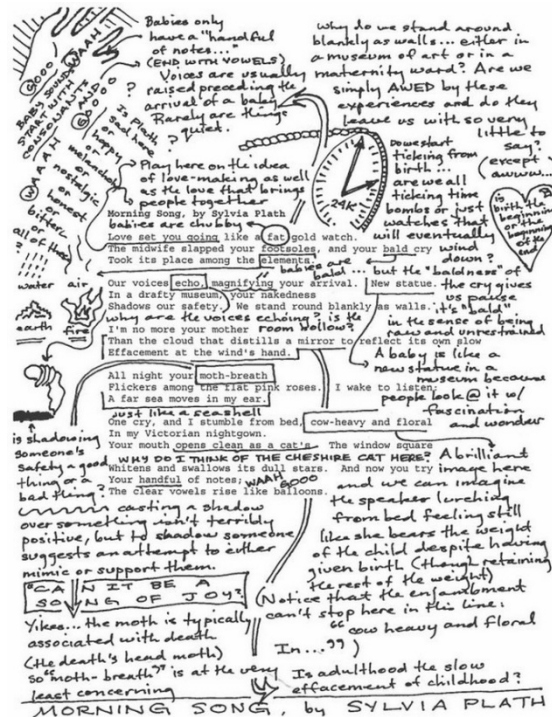 Babies only
have a "handful
of notes..."
(END WITH VOWELS)
Voices are usually
raised preceding the
arrival of a baby.
Rarely are things
quiet.
GOOO
WAAH
BABY SOUNDS
START WITH
CONSONANTS
AND
GOOOO
WAAAH
Is Plath
sad here
or
happy
or
melancholy
or
nostalgic
or
honest
or
bitter
or
all of these
?
?
Play here on the idea
of love-making as well
as the love that brings
people together
Why do we stand around
blankly as walls... either in
a museum of art or in a
maternity ward? Are we
simply AWED by these
experiences and do they
leave us with so very
little to
say?
(except
awww...)
24K
Do we start
ticking from
birth...
are we all
ticking time
bombs or just
watches that
will eventually
wind
down?
is birth the
beginning
or the
beginning
of the
end
Morning Song, by Sylvia Plath
babies are chubby
Love set you going like a fat gold watch.
The midwife slapped your footsoles, and your bald cry
Took its place among the elements.
babies are
bald... but the "baldness" of
the cry gives
us pause
it's "bald"
in the sense of being
raw and unrestrained
water
air
earth
fire
Our voices echo, magnifying your arrival. New statue.
In a drafty museum, your nakedness
Shadows our safety. We stand round blankly as walls.
why are the voices echoing? is the
room hollow?
I'm no more your mother
Than the cloud that distills a mirror to reflect its own slow
Effacement at the wind's hand.
A baby is like a
new statue in a
museum because
people look @ it w/
fascination
and wonder
All night your moth-breath
Flickers among the flat pink roses. I wake to listen:
A far sea moves in my ear.
just like a seashell
One cry, and I stumble from bed, cow-heavy and floral
In my Victorian nightgown.
Your mouth opens clean as a cat's. The window square
WHY DO I THINK OF THE CHESHIRE CAT HERE?
Whitens and swallows its dull stars. And now you try
Your handful of notes;
WAAH
GOOO
The clear vowels rise like balloons.
is shadowing
someone's
safety a good
thing or a
bad thing?
casting a shadow
over something isn't terribly
positive, but to shadow someone
suggests an attempt to either
mimic or support them.
A brilliant
image here
and we can imagine
the speaker lurching
from bed feeling still
like she bears the weight
of the child despite having
given birth (though retaining
the rest of the weight)
(Notice that the enjambment
can't stop here in this line:
"cow heavy and floral
In...")
"CAN IT BE A
SONG OF JOY?"
Yikes... the moth is typically
associated with death
(the death's head moth)
so "moth-breath" is at the very
least concerning
Is adulthood the slow
effacement of childhood?
MORNING SONG, by SYLVIA PLATH